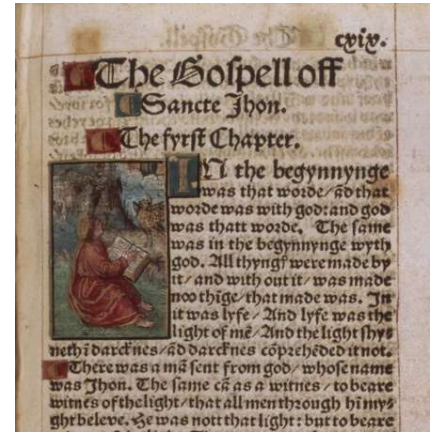 cxix.
The Gospell off
Sancte Jhon.
The fyrst Chapter.
IN the begynnynge
was that worde/ ād that
worde was with god: and god
was thatt worde. The same
was in the begynnynge wyth
god. All thyngſ were made by
it/ and with out it/ was made
noo thīge/ that made was. In
it was lyfe/ And lyfe was the
light of mē/ And the light shys
neth ī darcknes/ ād darcknes cōprehēded it not.
There was a mā sent from god/ whose name
was Jhon. The same cā as a witnes/ to beare
witnes of the light/ that all men through hī mys
ght beleve. He was nott that light: but to beare